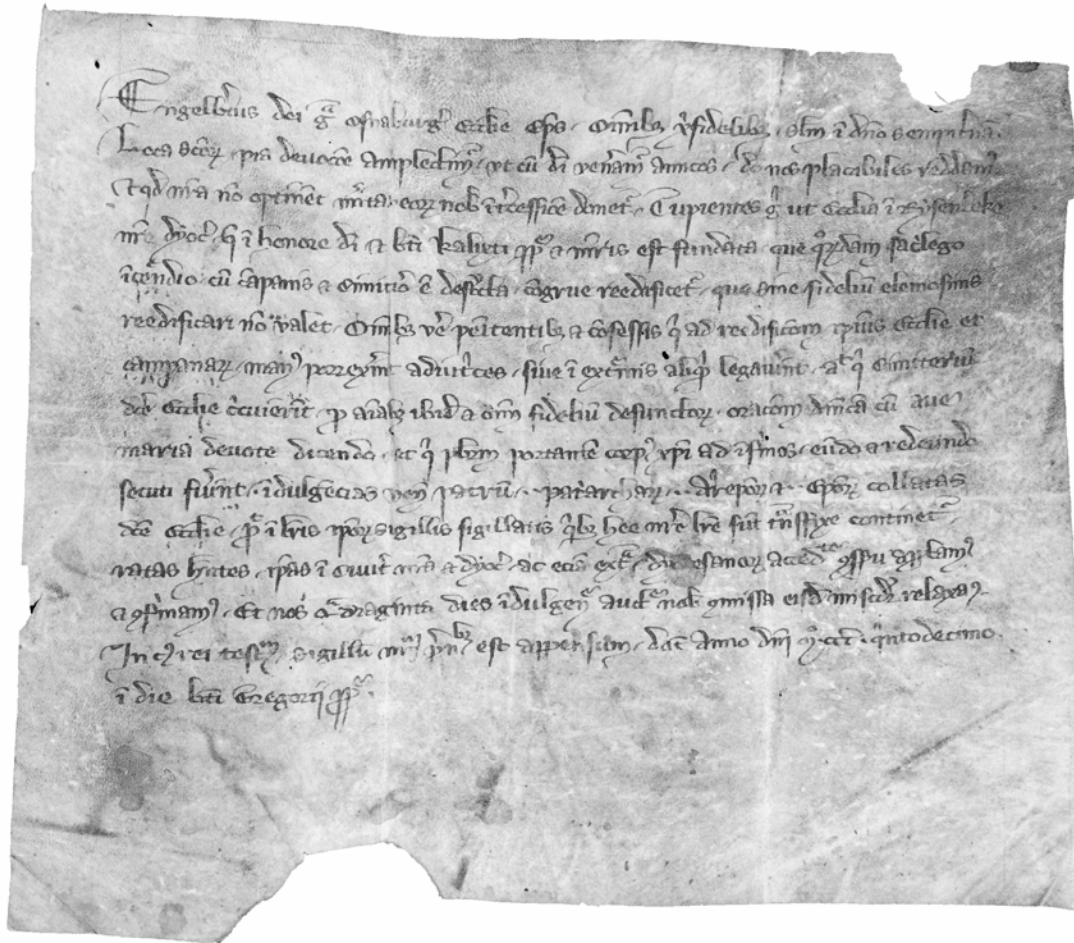 Engelb'tus dei gr̄a Osnaburgn̄ Eccl̄ie Ep̄s. Om̄ibȝ xp̄ifidelibȝ. sl̄m ī dn̄o sempit'nā.
Loca sc̄oꝝ. pia deuoc̄oe amplectim̄r. vt cū dī ven'am̄r amicos. deo nos placabiles reddam̄.
Et qd̄ nr̄a nō optinent m'ita. eoꝝ nob̄ īt'cessioīe donet̄r. Cupientes gͥ ut Eccl̄ia ī Rysenbeke
nr̄e dyoc̄. q̄ ī honore dī ⁊ bt̄i Kalixti pp̄e ⁊ mr̄ris est fundata. que qͦꝝdam sac'lego
īcendio. cū cāpanis ⁊ Cimit'io ē dest'cta. cōgrue reedificet̄r. que sine fideliū elemosinis
reedificari nō valet. Om̄ibȝ ver̄ penitentibȝ ⁊ cōfessis qͥ ad reedificōem ip̄ius Eccl̄ie et
campanaꝝ. man̄ꝰ porrex'int adiut'ces. siue ī ext'mis aliqͥd legau'int. ac̄ qͥ Cimiteriū
dc̄e Eccl̄ie c'cuierīt. ꝓ aīabȝ ibid̄ ⁊ om̄i fideliū defunctoꝝ. orac̄oem dn̄icā cū aue
maria deuote dicendo. et qͥ pb̄rm portantē corpꝰ xp̄i ad īf'mos. eūdo ⁊ redeundo
secuti fu'int. īdulgencias ven̄ patrū.. pat'archaꝝ.. Ar'ep̄oꝝ ⁊.. Ep̄oꝝ collatas
dc̄e Eccl̄ie. pͬ ī lr̄is ip̄oꝝ sigillis sigillatis qͥbȝ hee nr̄e lr̄e sūt tn̄sfixe continet̄r
ratas hn̄tes. ip̄as ī Ciuit̄ nr̄a ⁊ dyoc̄. ac eciā ext̄. dyocesanoꝝ acced̄te ꝯsensu app̄bamꝰ
⁊ ꝯf'mamꝰ. Et nos qͣdraginta dies īdulgen̄. auctͣ nob̄ ꝯmissa eisd̄ mi'cdr̄ relaxamꝰ.
In cꝰ rei testm̄. sigillū nr̄m p̄ntibȝ est appensum. dat̄ Anno dn̄i Mͦ.ccc̄. qͥntodecimo.
ī die bt̄i Gregorii pp̄e.